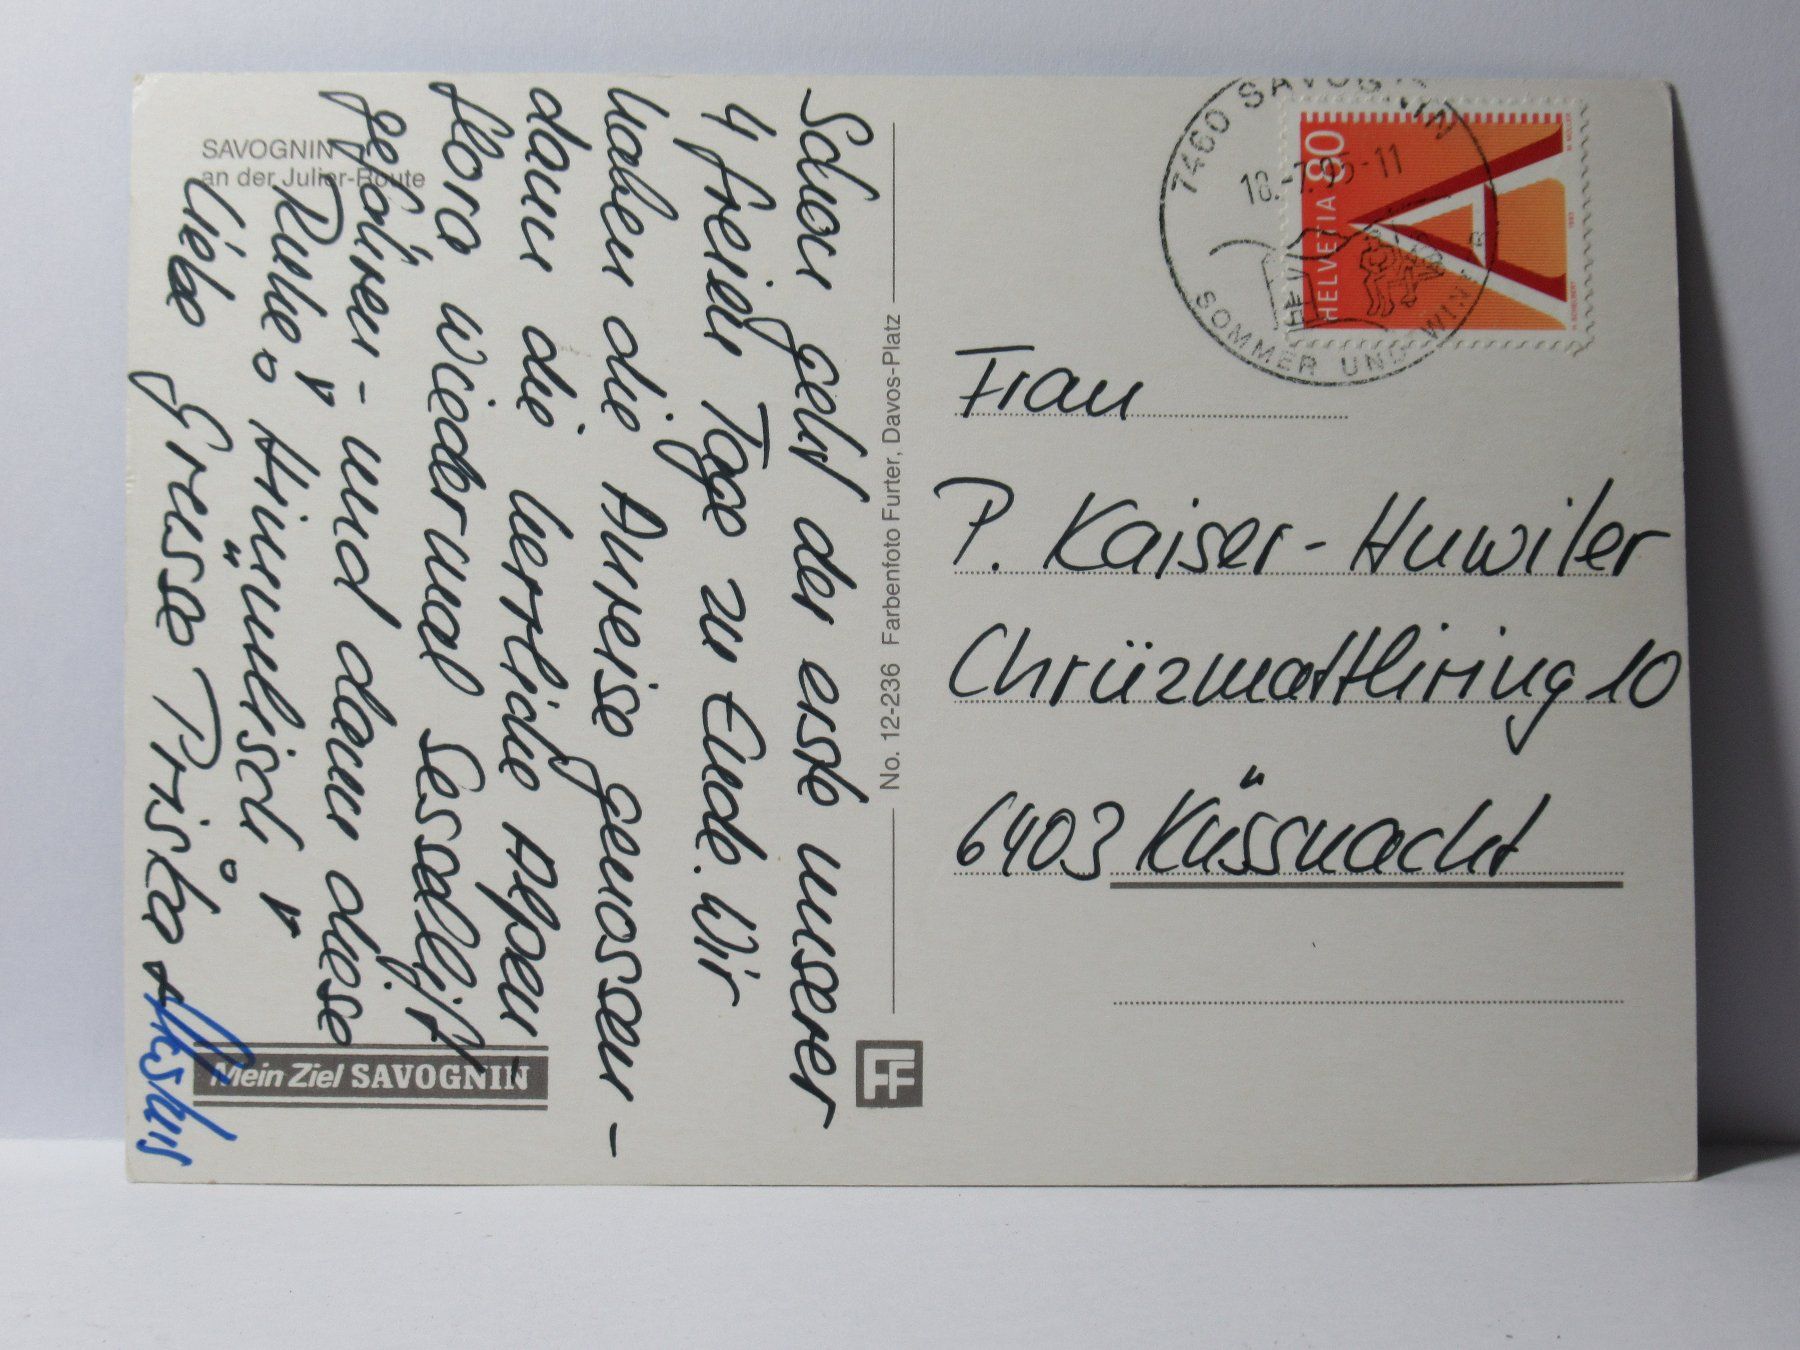 SAVOGNIN
an der Julier-Route
Schon geht der erste unserer
4 freien Tage zu Ende. Wir
haben die Anreise genossen -
dann die herrliche Alpen-
flora wiedermal Sessellift
gefahren - und dann diese
Ruhe! Himmlisch!
Liebe Grüsse Priska
Mein Ziel SAVOGNIN
No. 12-236 Farbenfoto Furter, Davos-Platz
FF
7460 SAVOGNIN
18.-7.95-11
SOMMER UND WINTER
HELVETIA 80
Frau
P. Kaiser-Huwiler
Chrüzmattliring 10
6403 Küssnacht